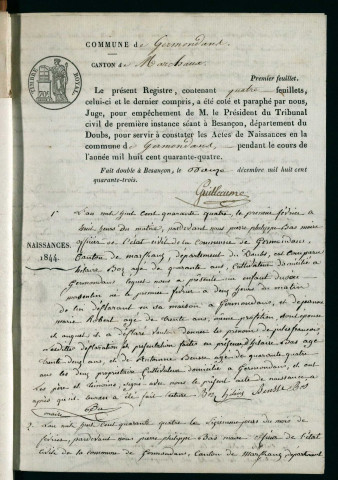 COMMUNE de Germondans.
CANTON de Marchaux
TIMBRE ROYAL
Premier feuillet.
Le présent Registre, contenant quatre feuillets,
celui-ci et le dernier compris, a été coté et paraphé par nous,
Juge, pour empêchement de M. le Président du Tribunal
civil de première instance séant à Besançon, département du
Doubs, pour servir à constater les Actes de Naissances en la
commune de Germondans, pendant le cours de
l'année mil huit cent quarante-quatre.
Fait double à Besançon, le décembre mil huit cent
quarante-trois.
Guillaume
NAISSANCES.
1844.
1° L'an mil huit Cent quarante quatre, le premier février a
huit heures du matin, pardevant nous pierre philippe Bas maire
officier de l'état civil de la Commune de Germondans,
Canton de marchaux, département du Doubs, est Comparu
Bas age de quarante ans, Cultivateur domicilié a
Germondans, lequel nous a présenté un enfant du sexe
masculin né le premier février a deux heures du matin
de lui déclarant en sa maison a Germondans, et de jeanne
marie Robert age de trente ans, même profession
et auquel il a déclaré vouloir donner les prénoms de
lesdites déclaration et présentation faites en présence d' Bas age
trente ans, et de Antoine age de quarante quatre
ans les deux propriétaire Cultivateur domicilié a Germondans, et ont
Les père et témoins, signé avec nous le présent acte de naissance
après qu'il en a été fait lecture Bas
maire
2. L'an mil huit Cent quarante quatre le du mois de
février, pardevant nous pierre philippe Bas maire officier de l'état
civil de la commune de Germondans, Canton de Marchaux, département